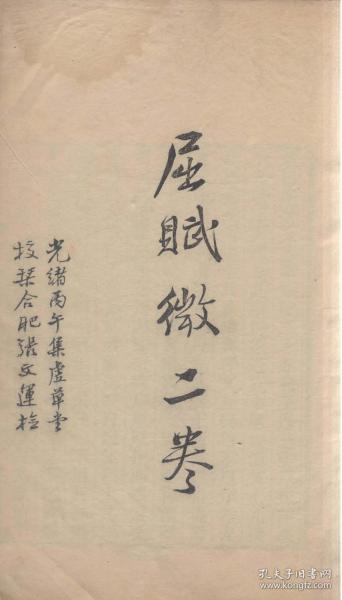 屈賦微二卷
光緒丙午集虛草堂
校栞合肥張文運檢
孔夫子旧书网